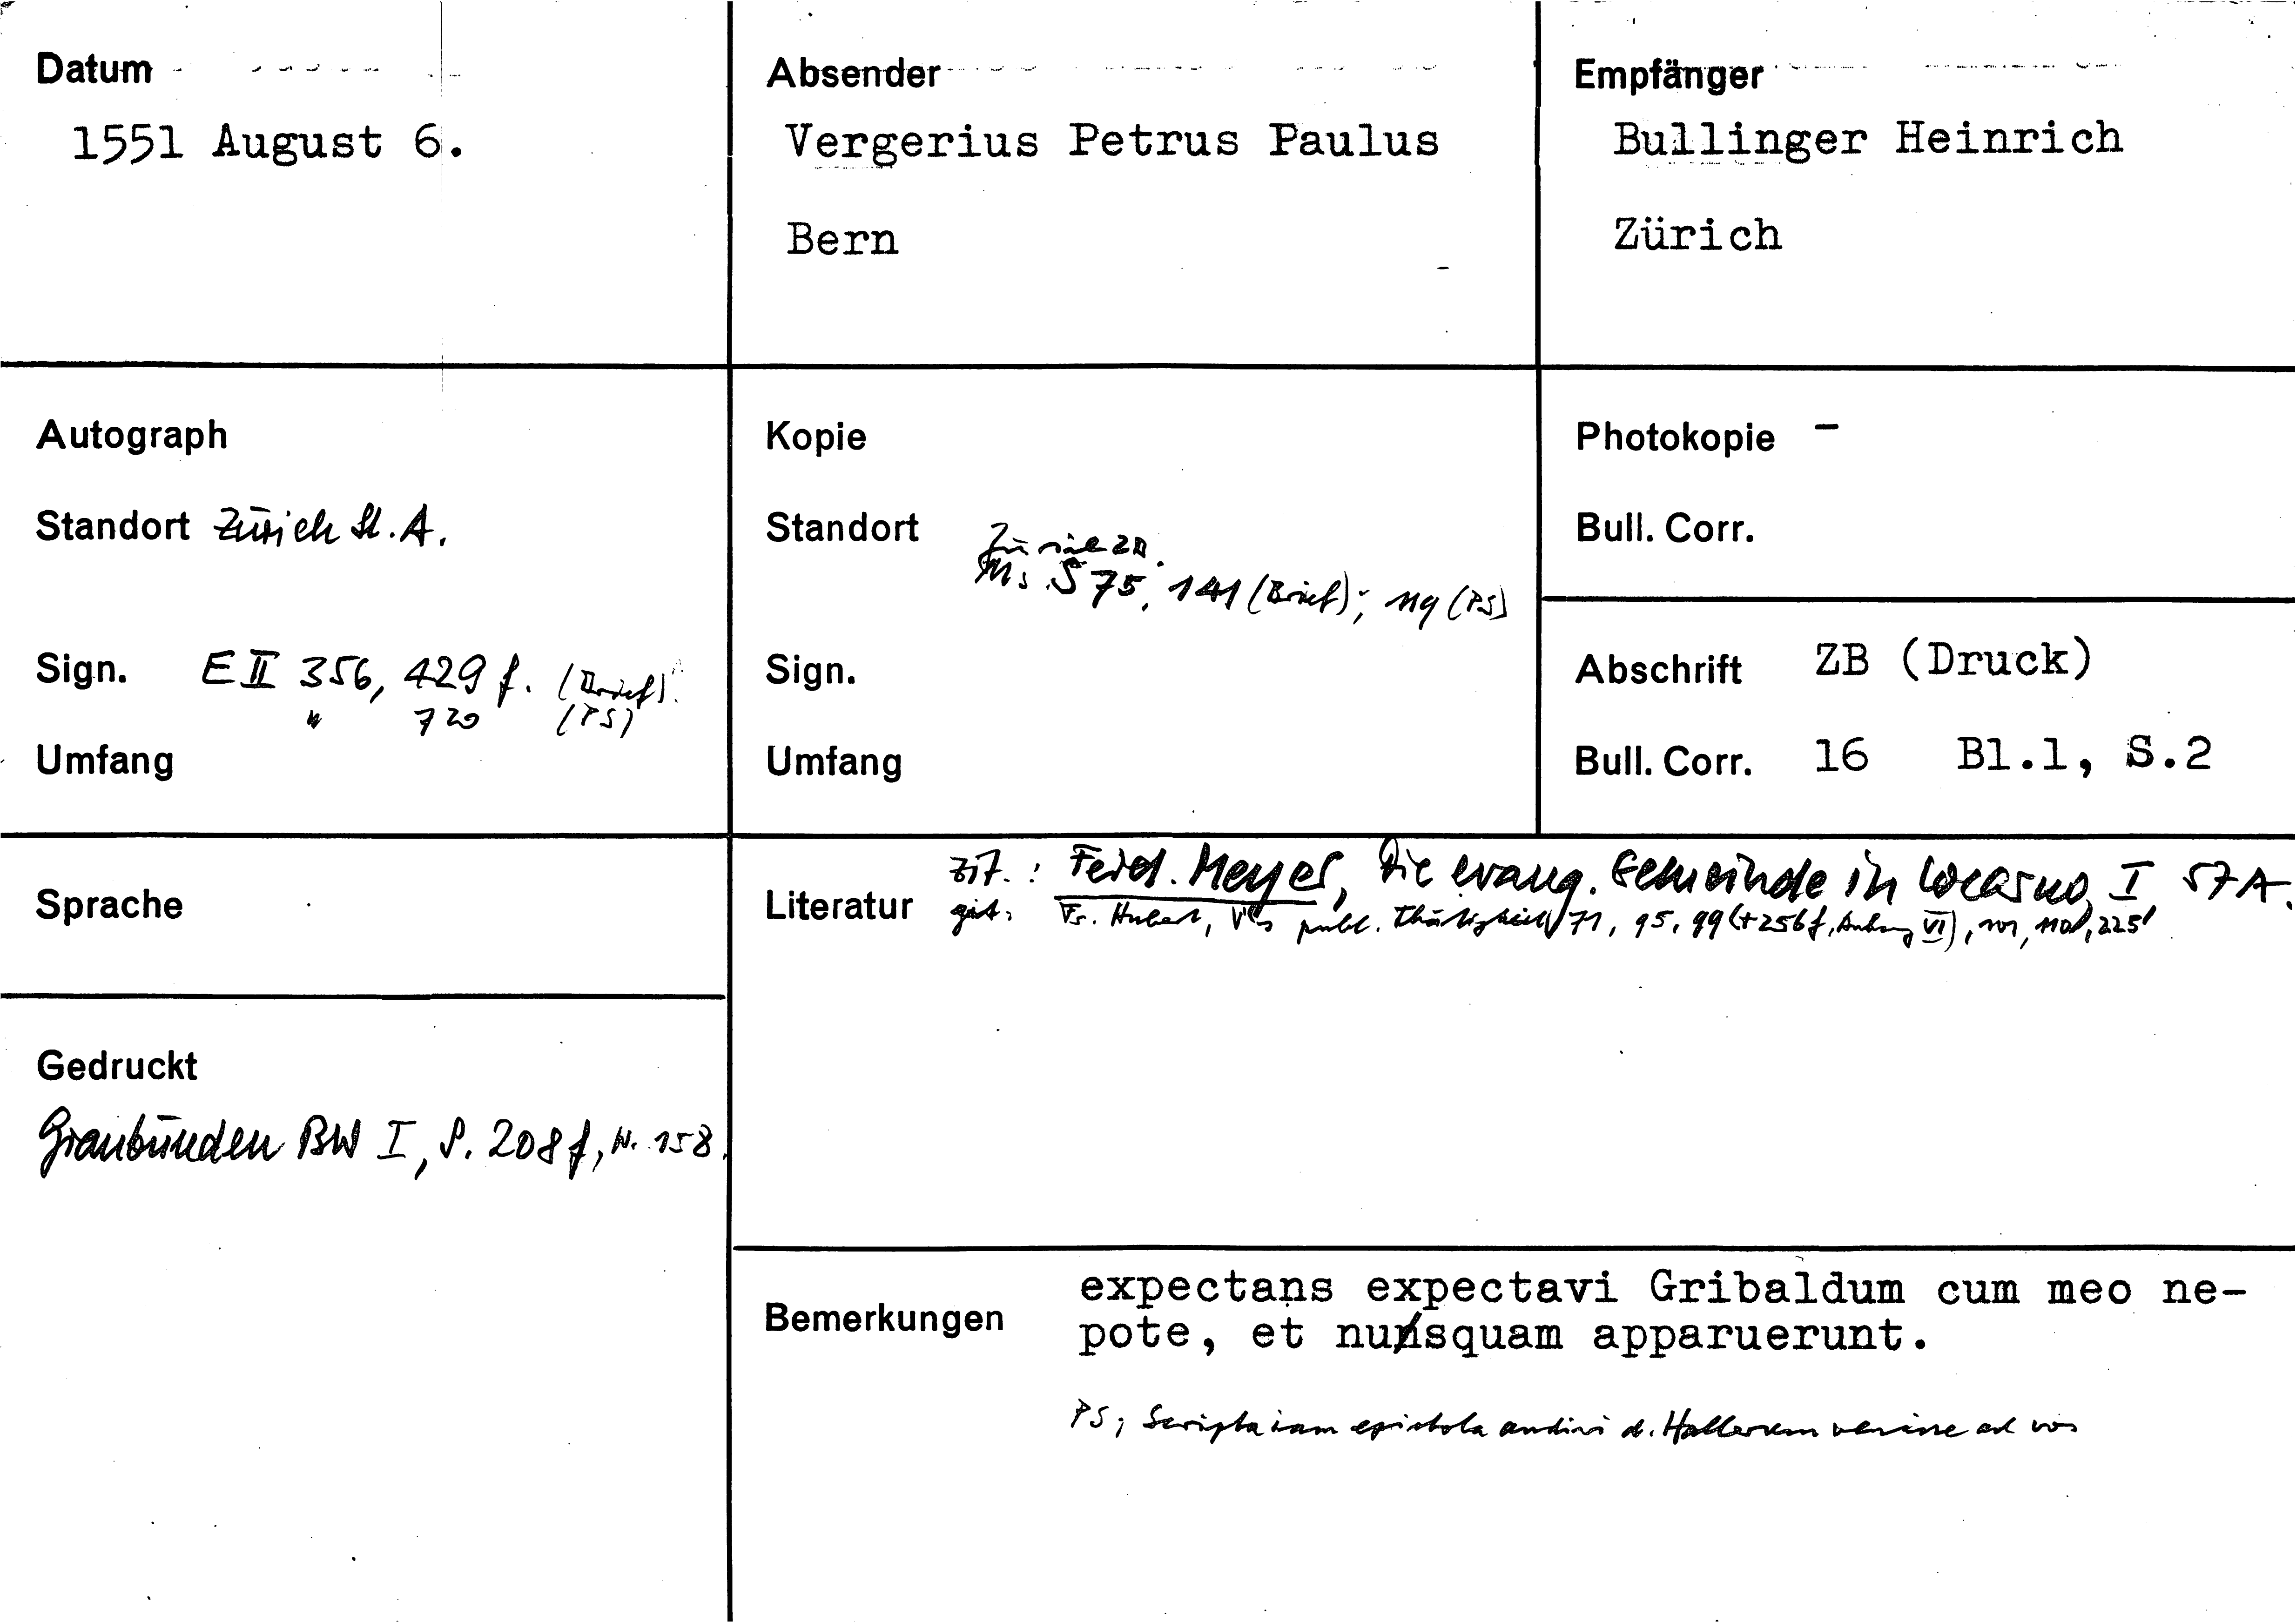 Datum
1551 August 6.
Absender
Vergerius Petrus Paulus
Bern
Empfänger
Bullinger Heinrich
Zürich
Autograph
Standort Zürich St. A.
Sign. E II 356, 429 f. (Brief)
" 720 (PS)
Umfang
Kopie
Standort
Zürich ZB
Ms S 75, 141 (Brief); 119 (PS)
Sign.
Umfang
Photokopie -
Bull. Corr.
Abschrift ZB (Druck)
Bull. Corr. 16 Bl.1, S.2
Sprache
Gedruckt
Graubünden BW I, S. 208 f, N. 158.
Literatur
zit.: Ferd. Meyer, Die evang. Gemeinde in Locarno I, 57 A.
Fr. Hubert, V's publ. Thätigkeit 71, 95, 99 (+256 f, Anhang VI), 101, 110, 225
Bemerkungen
expectans expectavi Gribaldum cum meo ne-
pote, et nusquam apparuerunt.
PS; Scripta iam epistola audivi d. Hallerum venisse ad vos